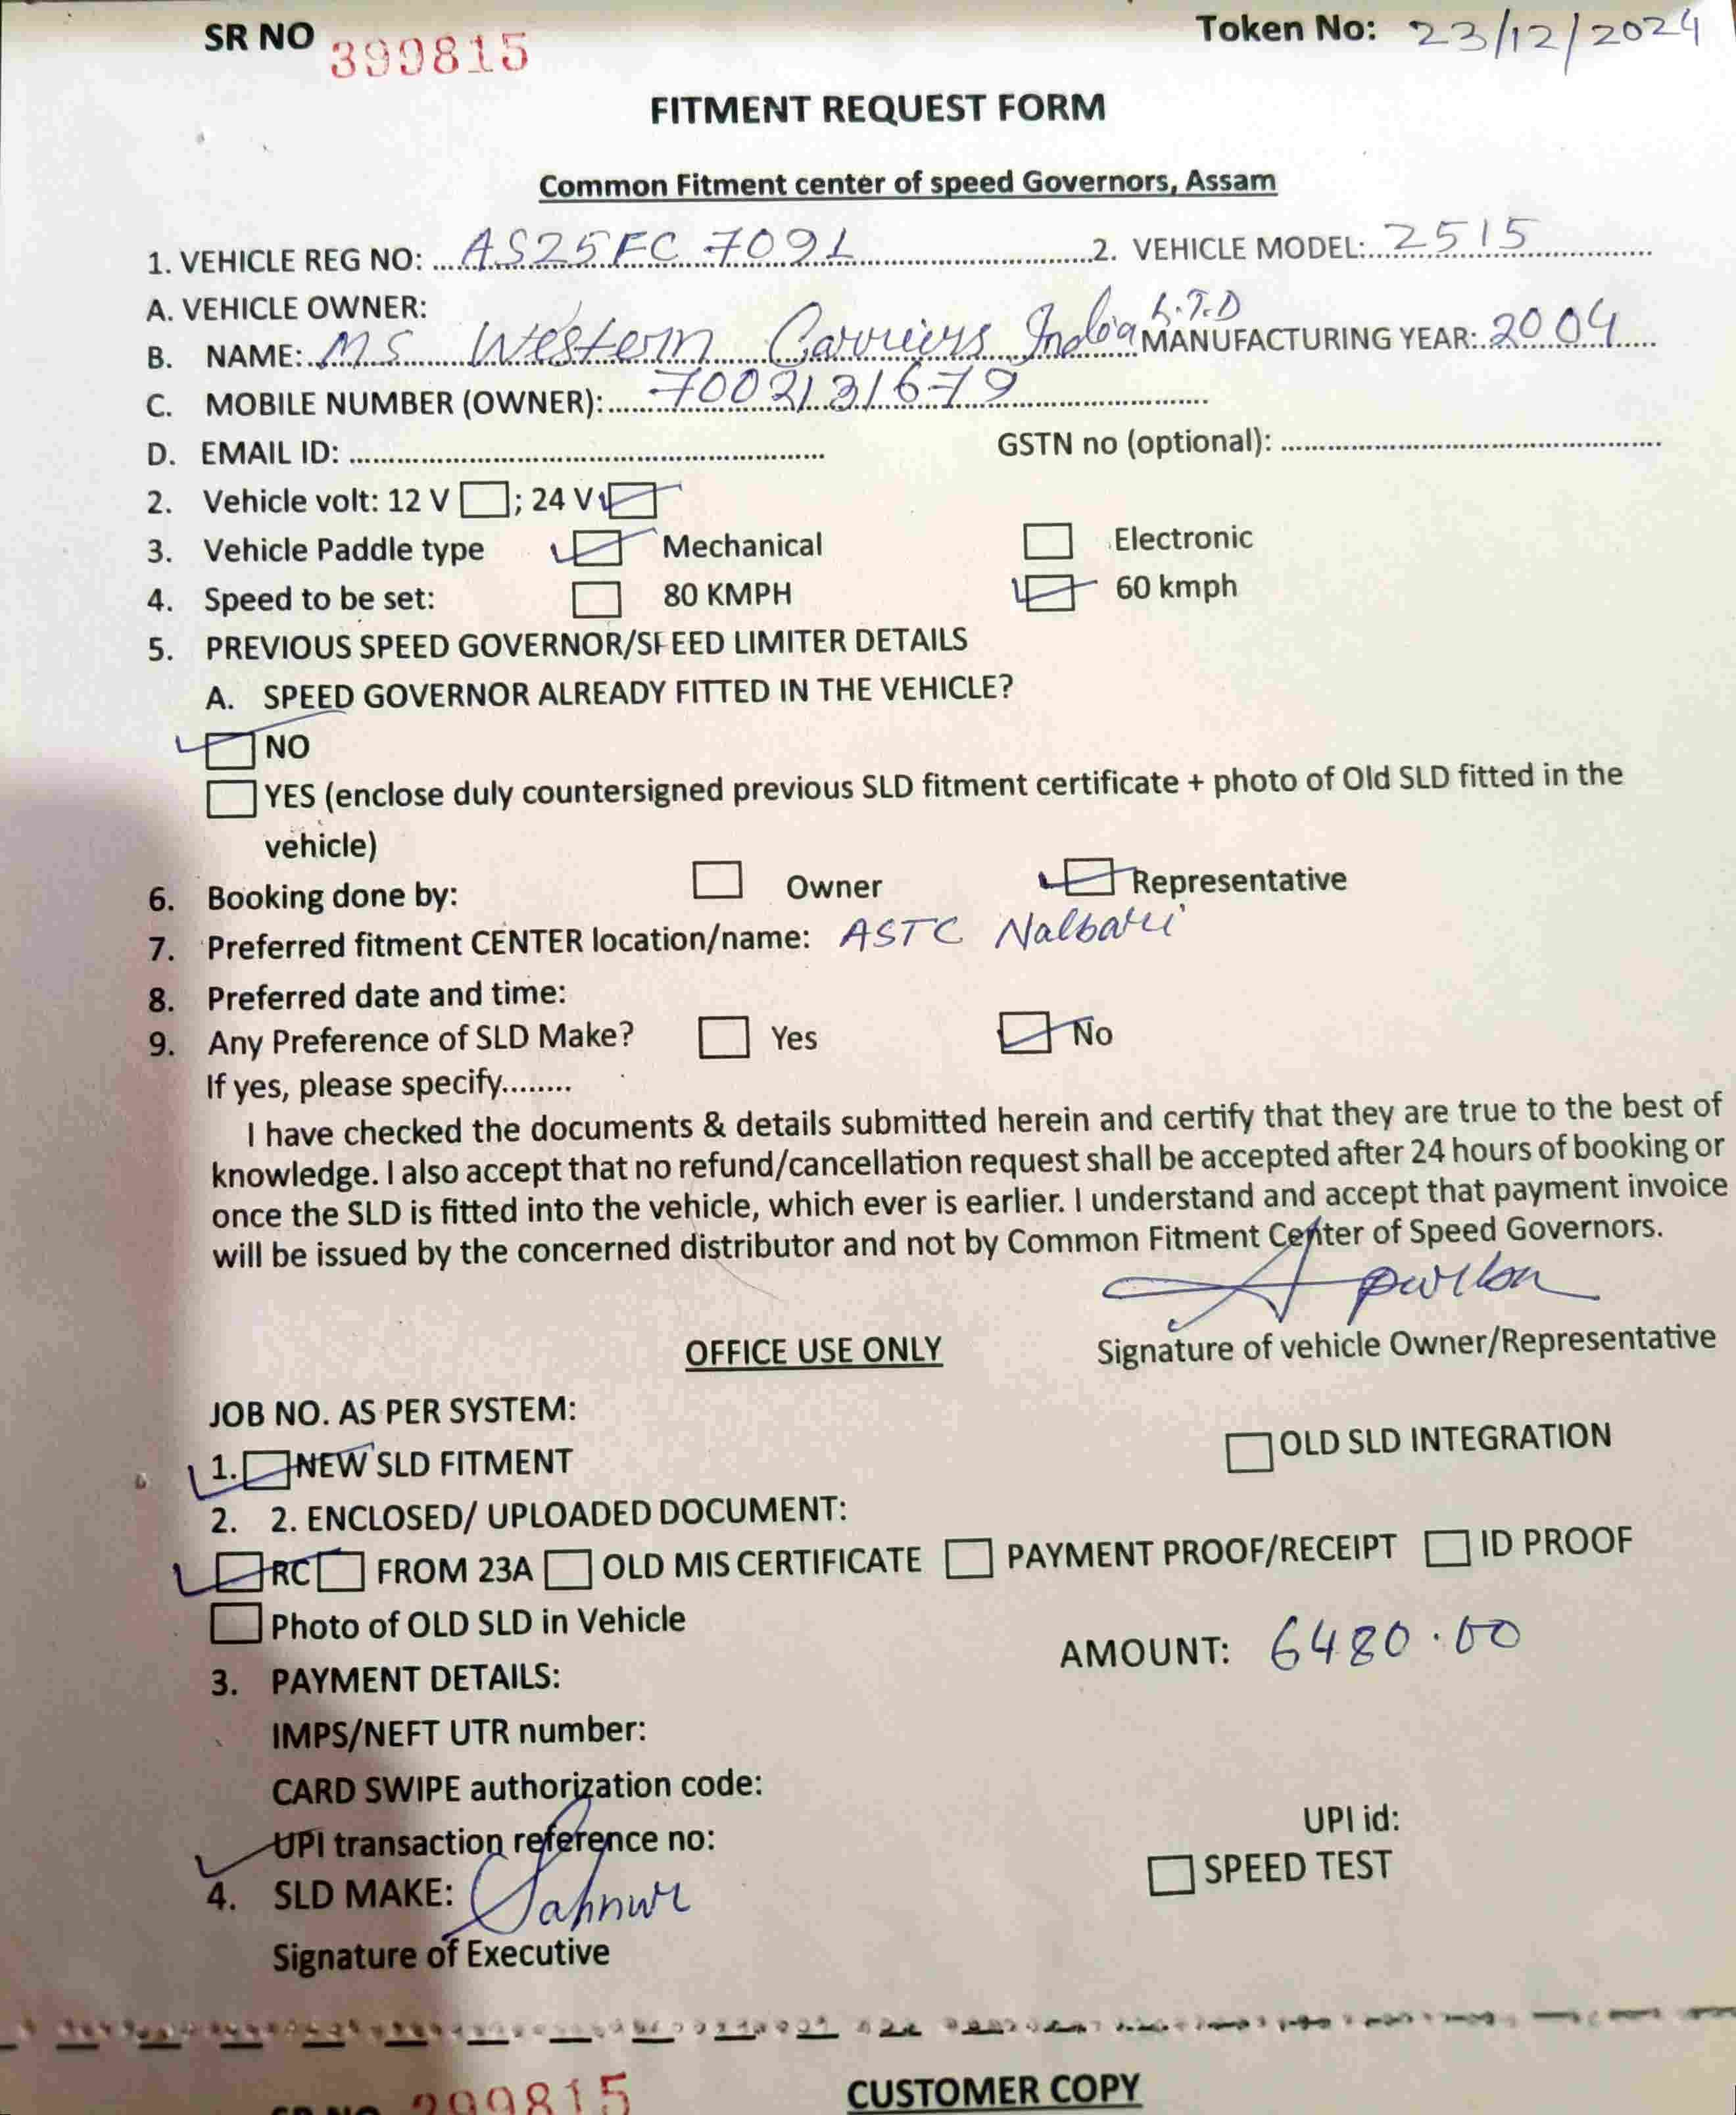 SR NO 399815 Token No: 23/12/2024
FITMENT REQUEST FORM
Common Fitment center of speed Governors, Assam
1. VEHICLE REG NO: AS25FC 7091 2. VEHICLE MODEL: 2515
A. VEHICLE OWNER:
B. NAME: MS Western Carriers India L.T.D MANUFACTURING YEAR: 2004
C. MOBILE NUMBER (OWNER): 7002131679
D. EMAIL ID: GSTN no (optional):
2. Vehicle volt: 12 V ; 24 V
3. Vehicle Paddle type Mechanical Electronic
4. Speed to be set: 80 KMPH 60 kmph
5. PREVIOUS SPEED GOVERNOR/SPEED LIMITER DETAILS
A. SPEED GOVERNOR ALREADY FITTED IN THE VEHICLE?
NO
YES (enclose duly countersigned previous SLD fitment certificate + photo of Old SLD fitted in the
vehicle)
6. Booking done by: Owner Representative
7. Preferred fitment CENTER location/name: ASTC Nalbari
8. Preferred date and time:
9. Any Preference of SLD Make? Yes No
If yes, please specify........
I have checked the documents & details submitted herein and certify that they are true to the best of
knowledge. I also accept that no refund/cancellation request shall be accepted after 24 hours of booking or
once the SLD is fitted into the vehicle, which ever is earlier. I understand and accept that payment invoice
will be issued by the concerned distributor and not by Common Fitment Center of Speed Governors.
OFFICE USE ONLY Signature of vehicle Owner/Representative
JOB NO. AS PER SYSTEM:
1. NEW SLD FITMENT OLD SLD INTEGRATION
2. 2. ENCLOSED/ UPLOADED DOCUMENT:
RC FROM 23A OLD MIS CERTIFICATE PAYMENT PROOF/RECEIPT ID PROOF
Photo of OLD SLD in Vehicle
AMOUNT: 6480.00
3. PAYMENT DETAILS:
IMPS/NEFT UTR number:
CARD SWIPE authorization code:
UPI transaction reference no: UPI id:
4. SLD MAKE: SPEED TEST
Signature of Executive
SR NO 399815 CUSTOMER COPY